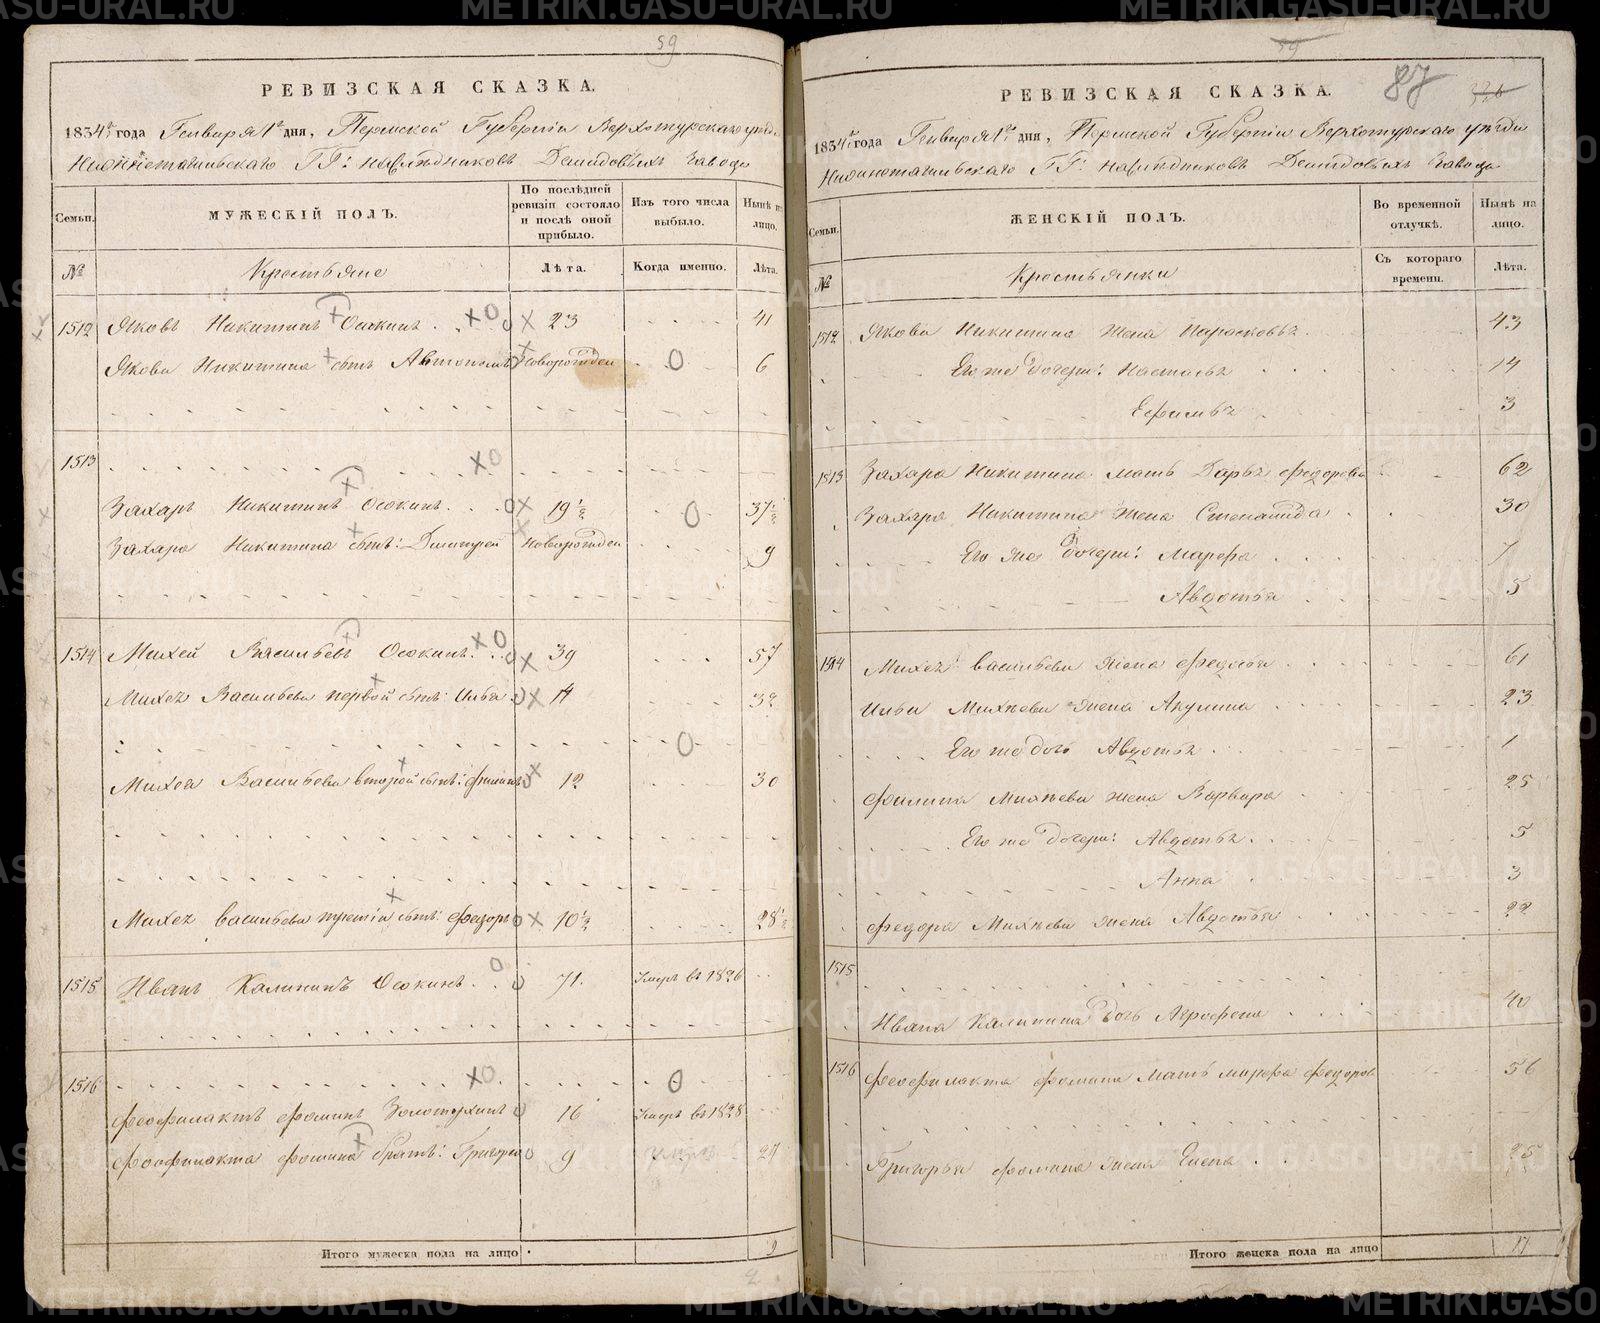 59
РЕВИЗСКАЯ СКАЗКА.
1834 года Генваря 1 дня, Пермской Губернии Верхотурскаго уезда
Нижнетагильскаго ГГ: наследниковъ Демидовыхъ завода
Семьи.
МУЖЕСКІЙ ПОЛЪ.
По послѣдней ревизіи состояло и послѣ оной прибыло.
Изъ того числа выбыло.
Нынѣ на лицо.
№
Крестьяне
Лѣта.
Когда именно.
Лѣта.
1512 Яковъ Никитинъ Осокинъ 23 41
Якова Никитина сынъ Автономъ новорожден 6
1513
Захаръ Никитинъ Осокинъ 19½ 37½
Захара Никитина сынъ: Дмитрей новорожден 9
1514 Михей Васильевъ Осокинъ 39 57
Михея Васильева первой сынъ: Илья 14 32
Михея Васильева второй сынъ: Филипъ 12 30
Михея Васильева третій сынъ: Федоръ 10½ 28½
1515 Иванъ Калининъ Осокинъ 71 Умеръ въ 1826
1516
Феофилактъ Фоминъ Золотухинъ 16 Умеръ въ 1828
Феофилакта Фомина братъ: Григорей 9 27
Итого мужеска пола на лицо 9
59
87
РЕВИЗСКАЯ СКАЗКА.
1834 года Генваря 1 дня, Пермской Губерніи Верхотурскаго уезда
Нижнетагильскаго ГГ: наследниковъ Демидовыхъ завода
Семьи.
ЖЕНСКІЙ ПОЛЪ.
Во временной отлучкѣ.
Нынѣ на лицо.
№
Крестьянки
Съ котораго времени.
Лѣта.
1512 Якова Никитина жена Парасковья 43
Его же дочери: Настасья 14
Ефимья 3
1513 Захара Никитина мать Дарья Федорова 62
Захара Никитина жена Степанида 30
Его же дочери: Марфа 7
Авдотья 5
1514 Михея Васильева жена Федосья 61
Ильи Михеева жена Акулина 23
Его же дочь Авдотья 1
Филипа Михеева жена Варвара 25
Его же дочери: Авдотья 5
Анна 3
Федора Михеева жена Авдотья 22
1515
Ивана Калинина дочь Агрофена 40
1516 Феофилакта Фомина мать Марфа Федоров 56
Григорья Фомина жена Елена 25
Итого женска пола на лицо 17
METRIKI.GASO-URAL.RU